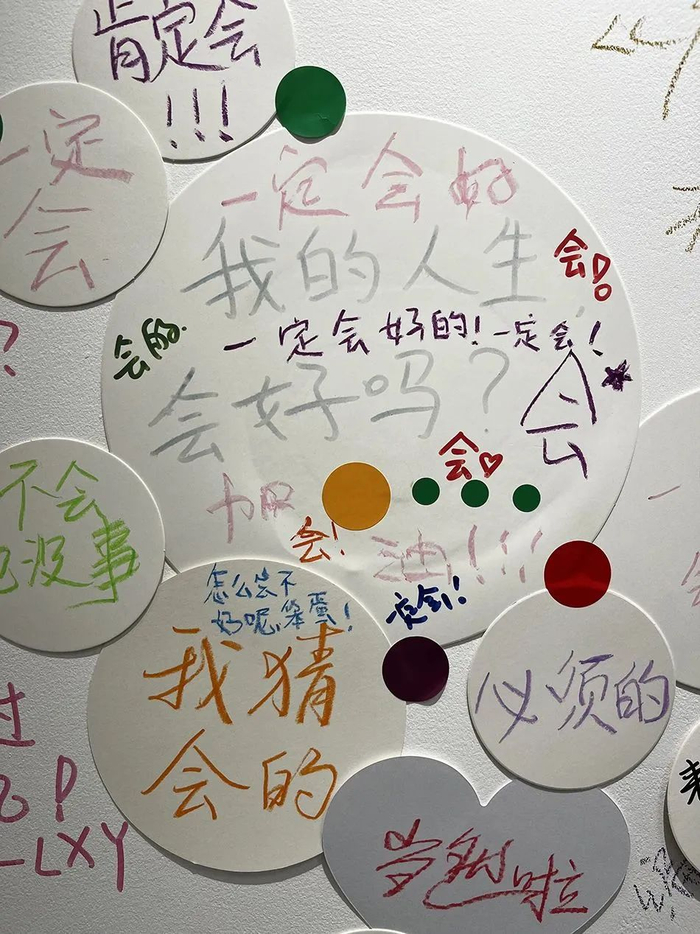 肯定会
!!!
一定
会
一定会好
我的人生,
会!
会的.
一定会好的!一定会!
会好吗?
会
会♡
加
会!
油!!!
定会!
?
不会
也没事
怎么会不
好呢,笨蛋!
我猜
会的
必须的
过
-LXY
啦